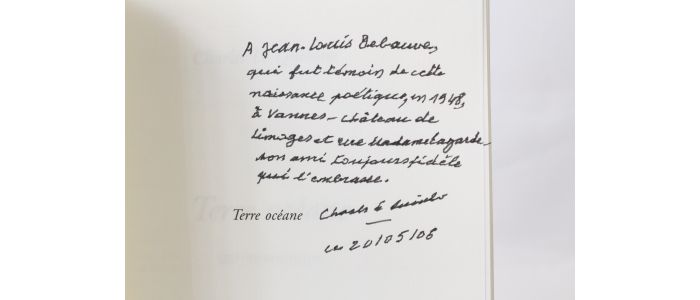 A Jean-Louis Debauve,
qui fut témoin de cette
naissance poétique, en 1948,
à Vannes - château de
Limoges et rue Madame Lagarde -
son ami toujours fidèle
qui l'embrasse.
Terre océane
Charles le Quintrec
le 20/05/06